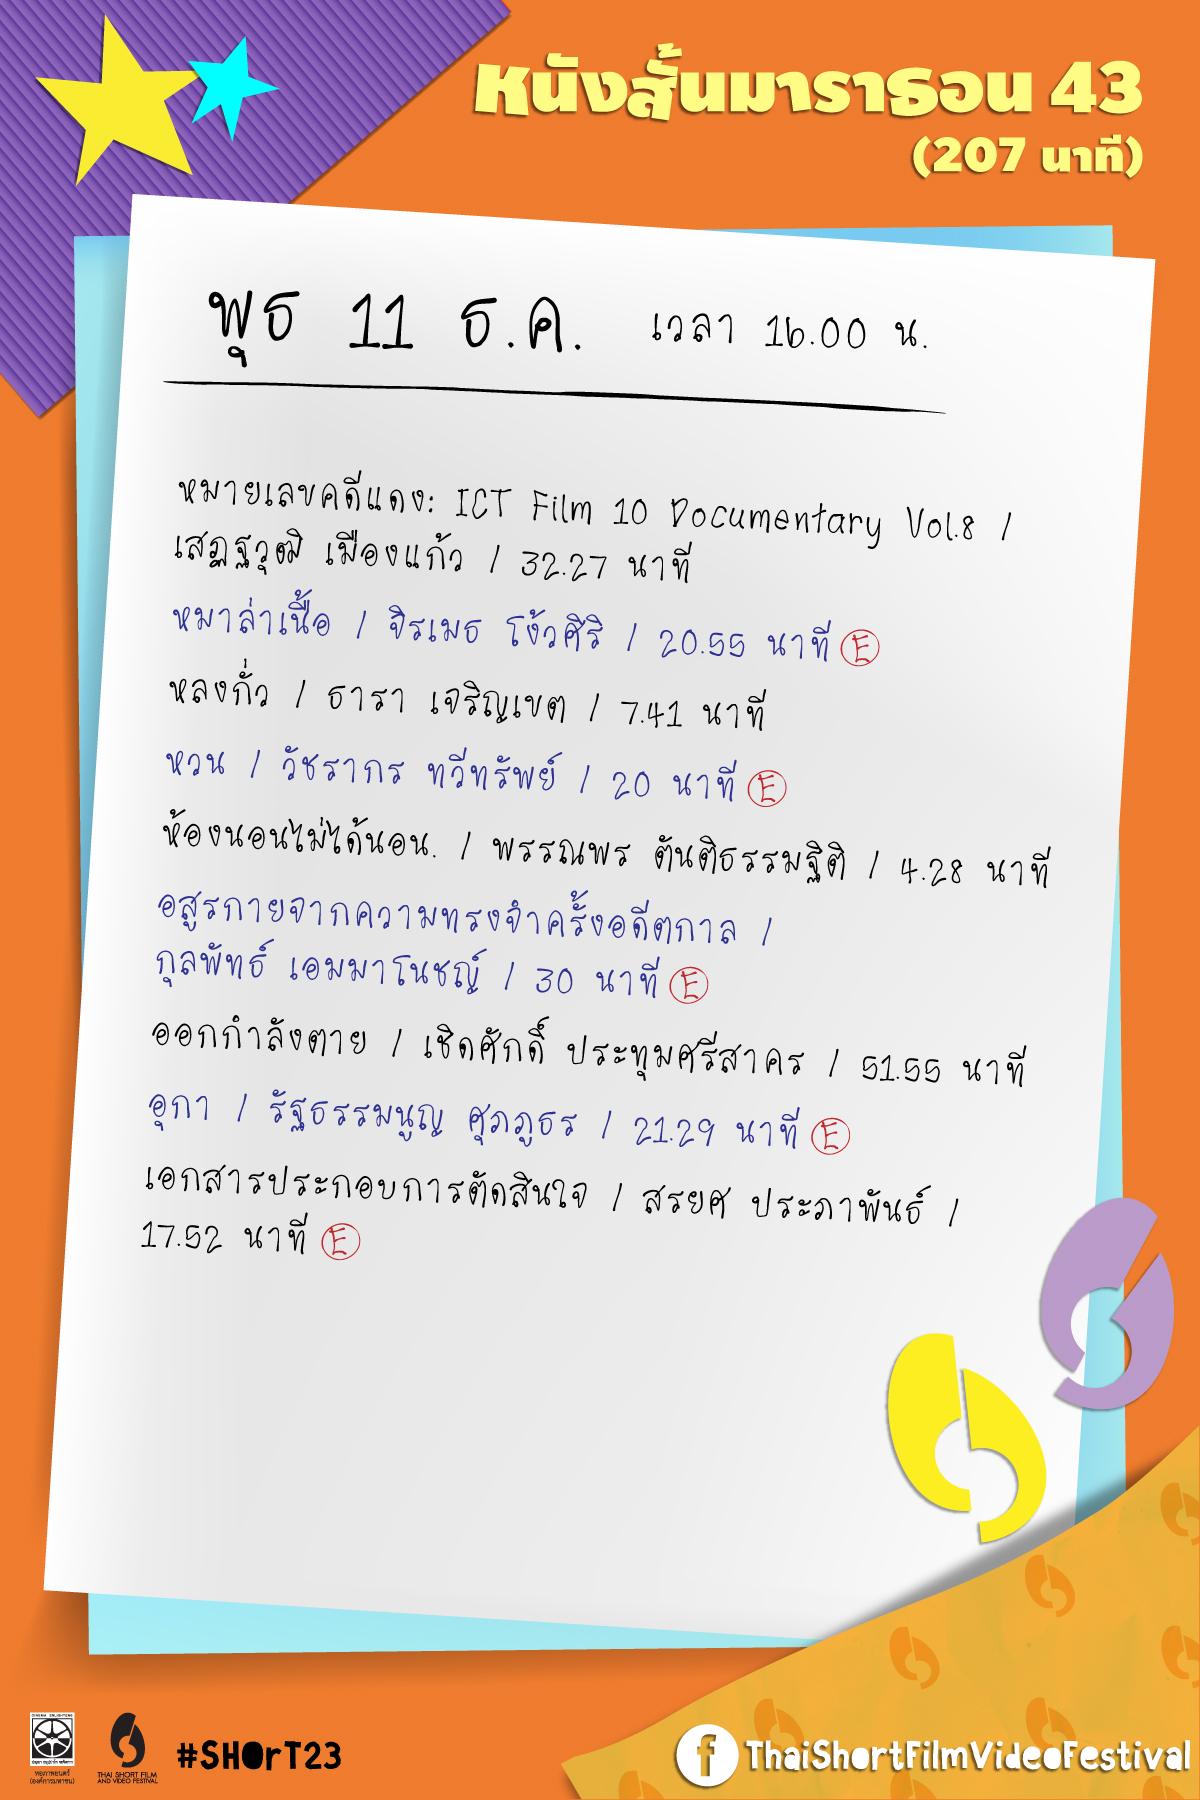 หนังสั้นมาราธอน 43
(207 นาที)
พุธ 11 ธ.ค. เวลา 16.00 น.
หมายเลขคดีแดง: ICT Film 10 Documentary Vol.8 /
เสฏฐวุฒิ เมืองแก้ว / 32.27 นาที
หมาล่าเนื้อ / จิรเมธ โง้วศิริ / 20.55 นาที E
หลงกั่ว / ธารา เจริญเขต / 7.41 นาที
หวน / วัชรากร ทวีทรัพย์ / 20 นาที E
ห้องนอนไม่ได้นอน. / พรรณพร ตันติธรรมฐิติ / 4.28 นาที
อสูรกายจากความทรงจำครั้งอดีตกาล /
กุลพัทธ์ เอมมาโนชญ์ / 30 นาที E
ออกกำลังตาย / เชิดศักดิ์ ประทุมศรีสาคร / 51.55 นาที
อุกา / รัฐธรรมนูญ ศุภภูธร / 21.29 นาที E
เอกสารประกอบการตัดสินใจ / สรยศ ประภาพันธ์ /
17.52 นาที E
CINEMA ENLIGHTENS
หอภาพยนตร์
(องค์การมหาชน)
THAI SHORT FILM
AND VIDEO FESTIVAL
#SHOrT23
f ThaiShortFilmVideoFestival